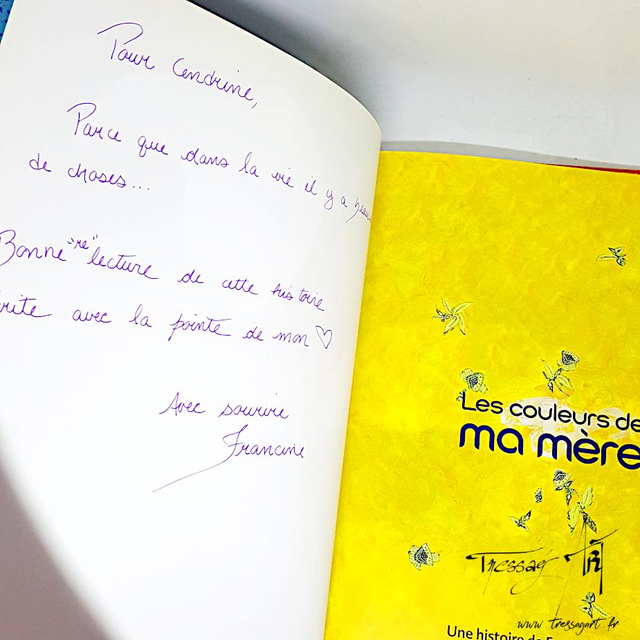 Pour Cendrine,
Parce que dans la vie il y a
de choses...
Bonne "re" lecture de cette histoire
avec la pointe de mon ♡
Avec sourire
Francine
Les couleurs de
ma mère
Tressag
www.tressagart.fr
Une histoire de